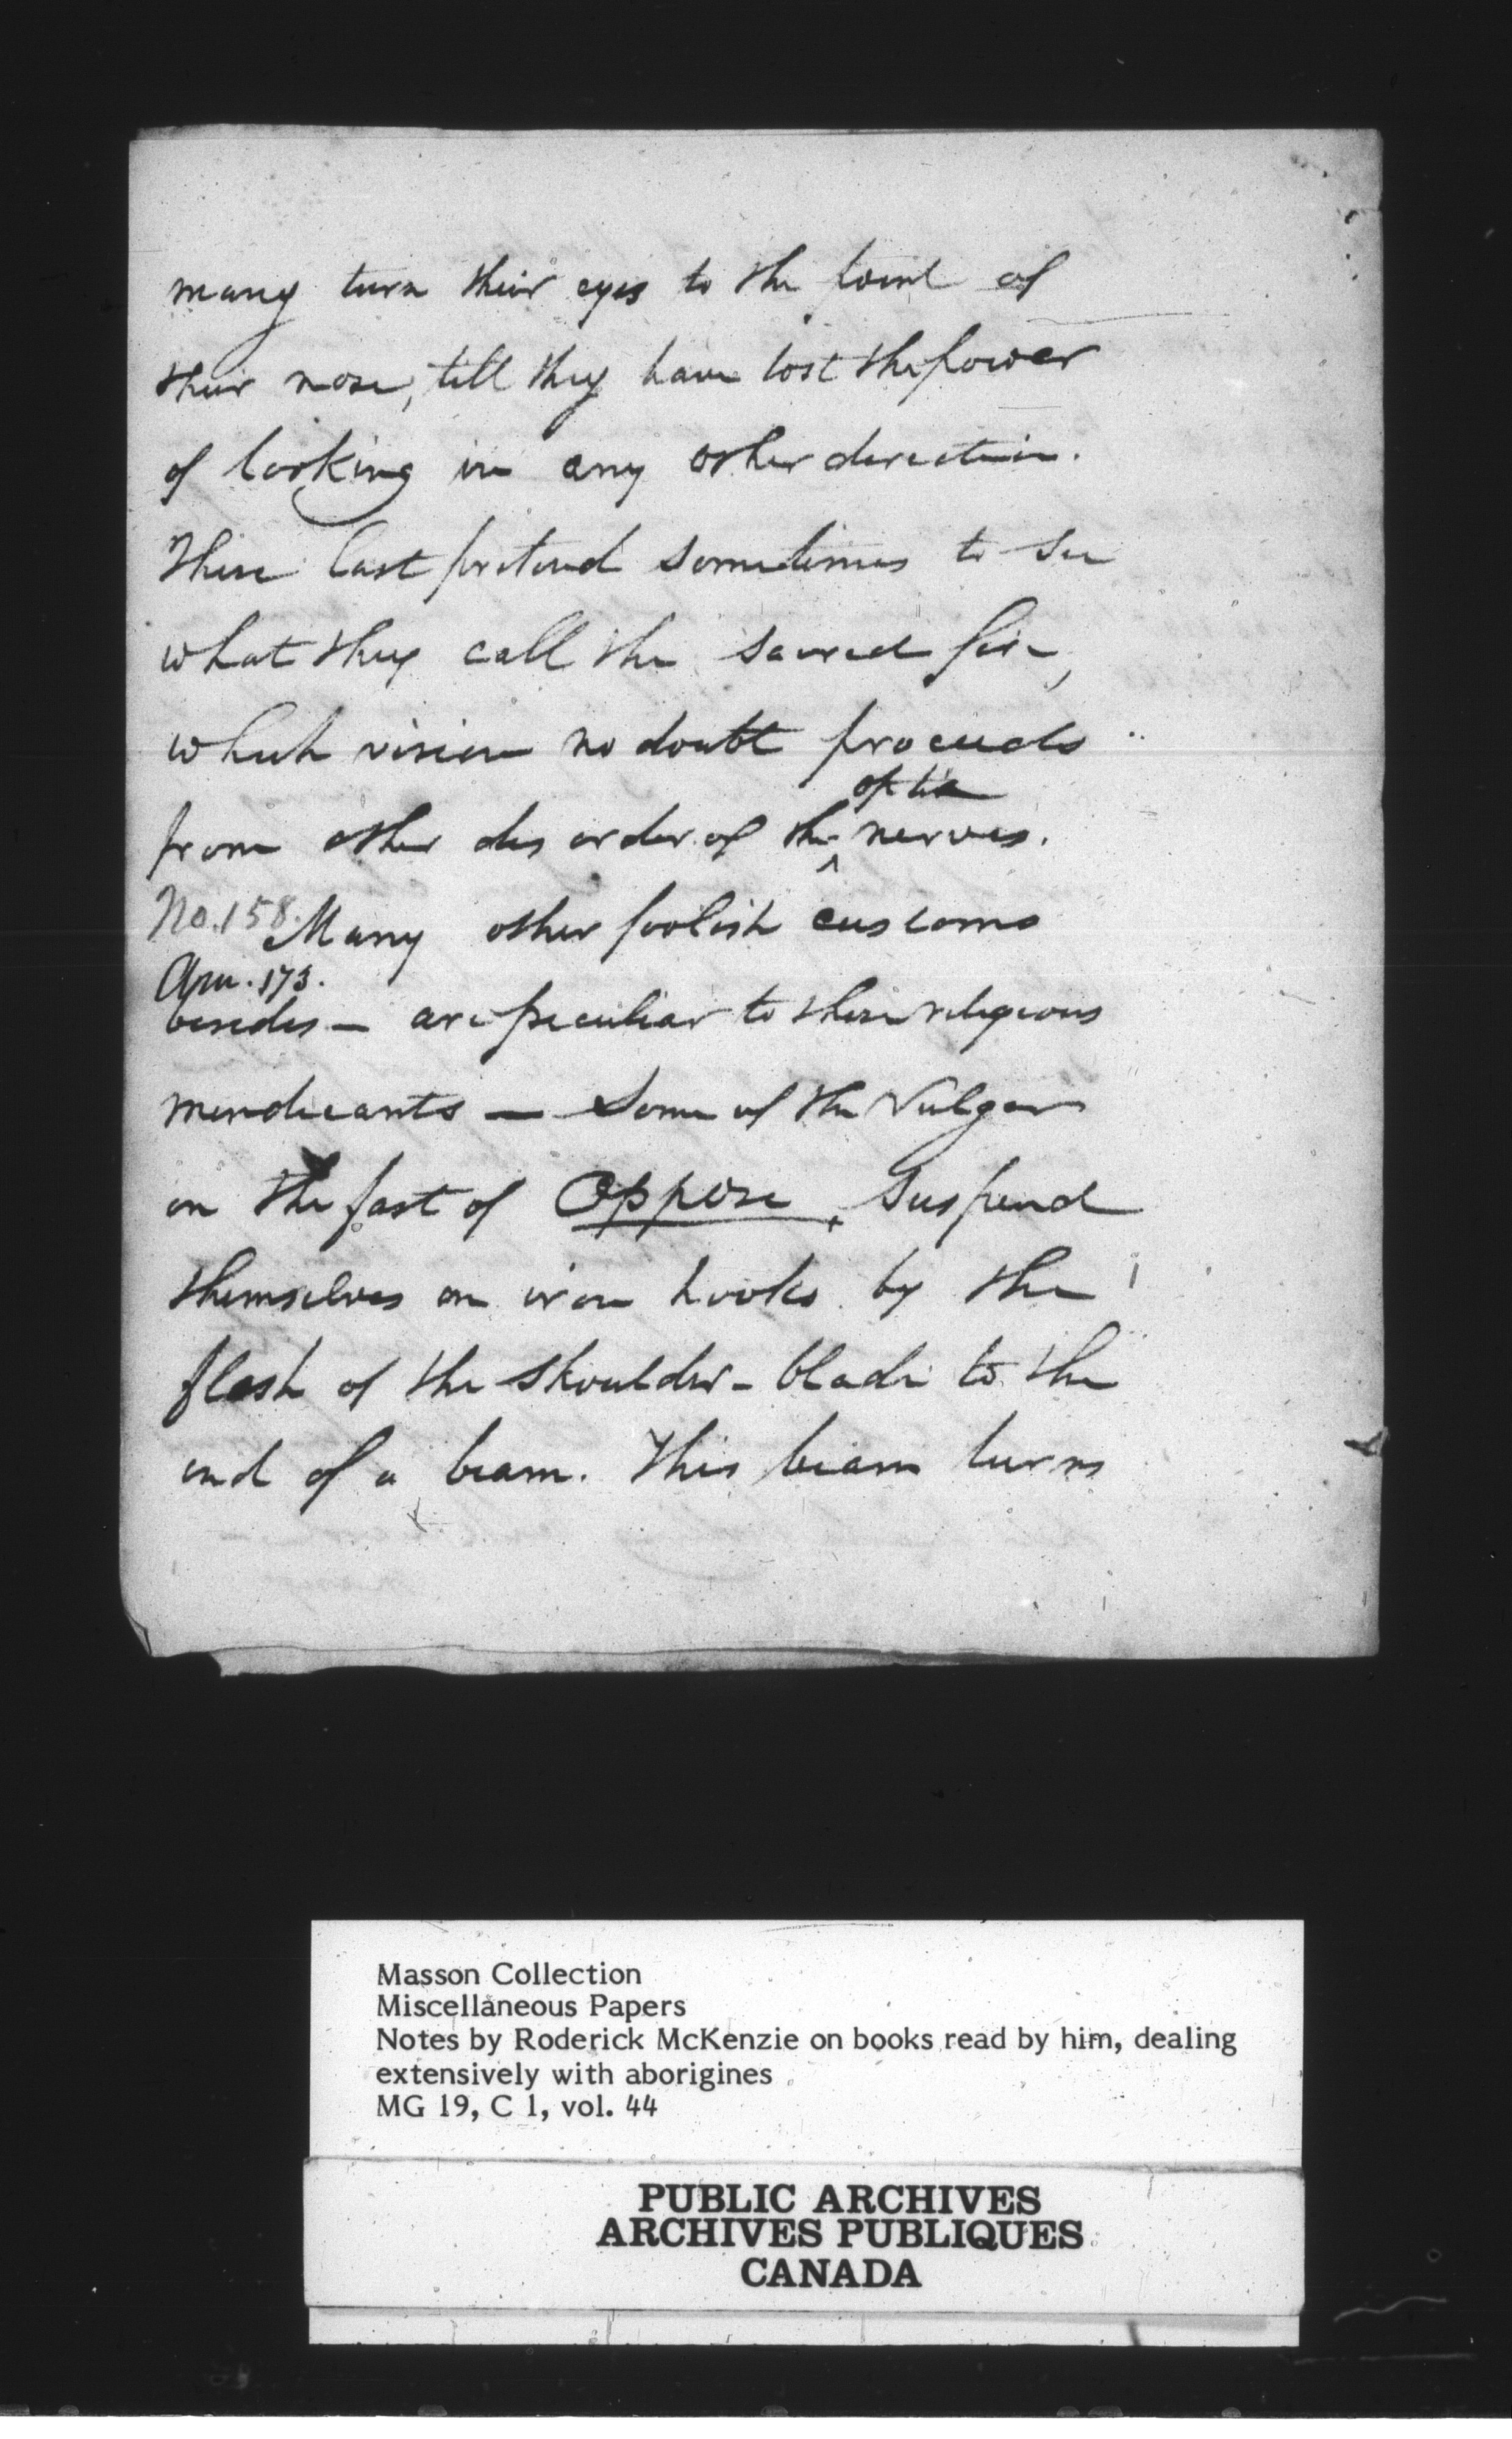 many turn their eyes to the point of
their nose, till they have lost the power
of looking in any other direction.
These last pretend sometimes to see
what they call the sacred fire,
which vision no doubt proceeds
optic
from other disorder of the ^ nerves.
No. 158. Many other foolish customs
173.
besides — are peculiar to these religious
mendicants — Some of the Vulgar
on the fast of Oppose, Suspend
themselves on iron hooks by the
flesh of the shoulder-blade to the
end of a beam. This beam turns
Masson Collection
Miscellaneous Papers
Notes by Roderick McKenzie on books read by him, dealing
extensively with aborigines
MG 19, C 1, vol. 44
PUBLIC ARCHIVES
ARCHIVES PUBLIQUES
CANADA